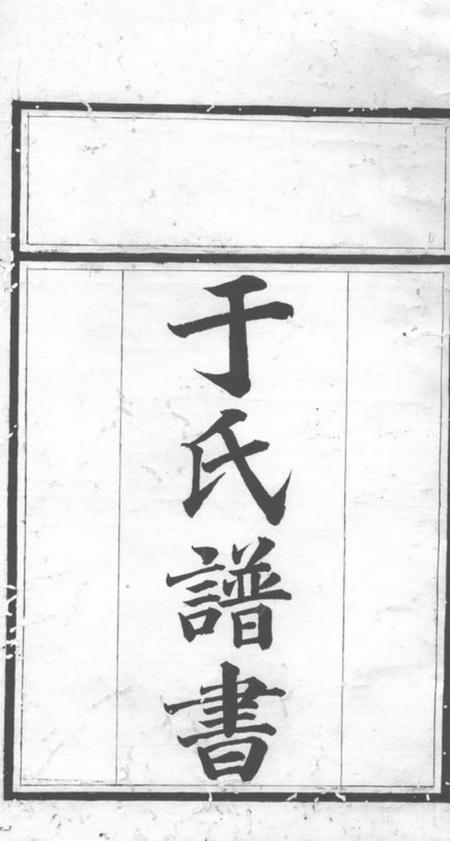 于氏譜書